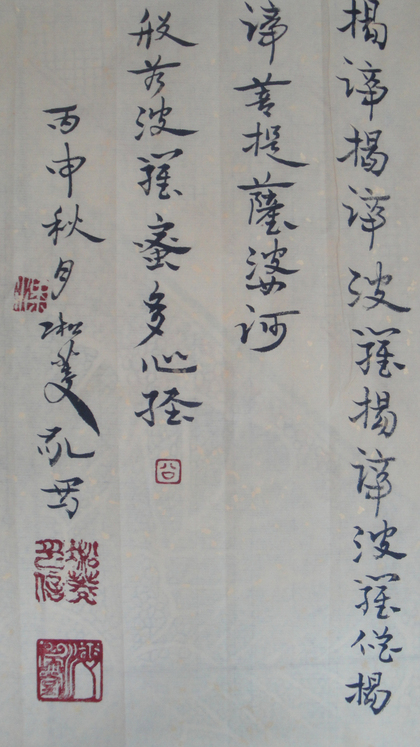 揭諦揭諦波羅揭諦波羅僧揭
諦菩提薩婆訶
般若波羅蜜多心經
丙申秋月